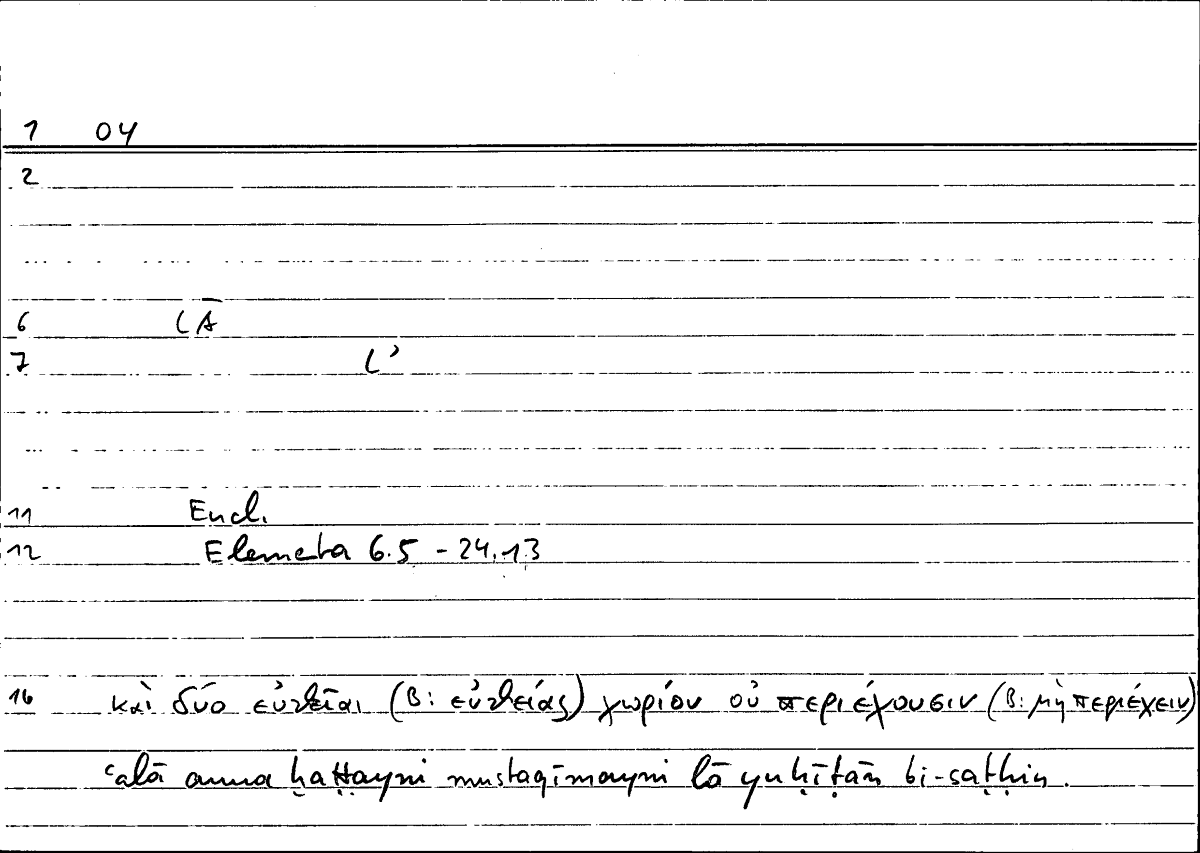 1 04
2
6 LĀ
7 L'
11 Eucl.
12 Elementa 6.5 - 24.13
16 καὶ δύο εὐθεῖαι (B: εὐθείας) χωρίον οὐ περιέχουσιν (B: μὴ περιέχειν)
ʿalā anna ḫaṭṭayni mustaqīmayni lā yuḥīṭān bi-saṭḥin.